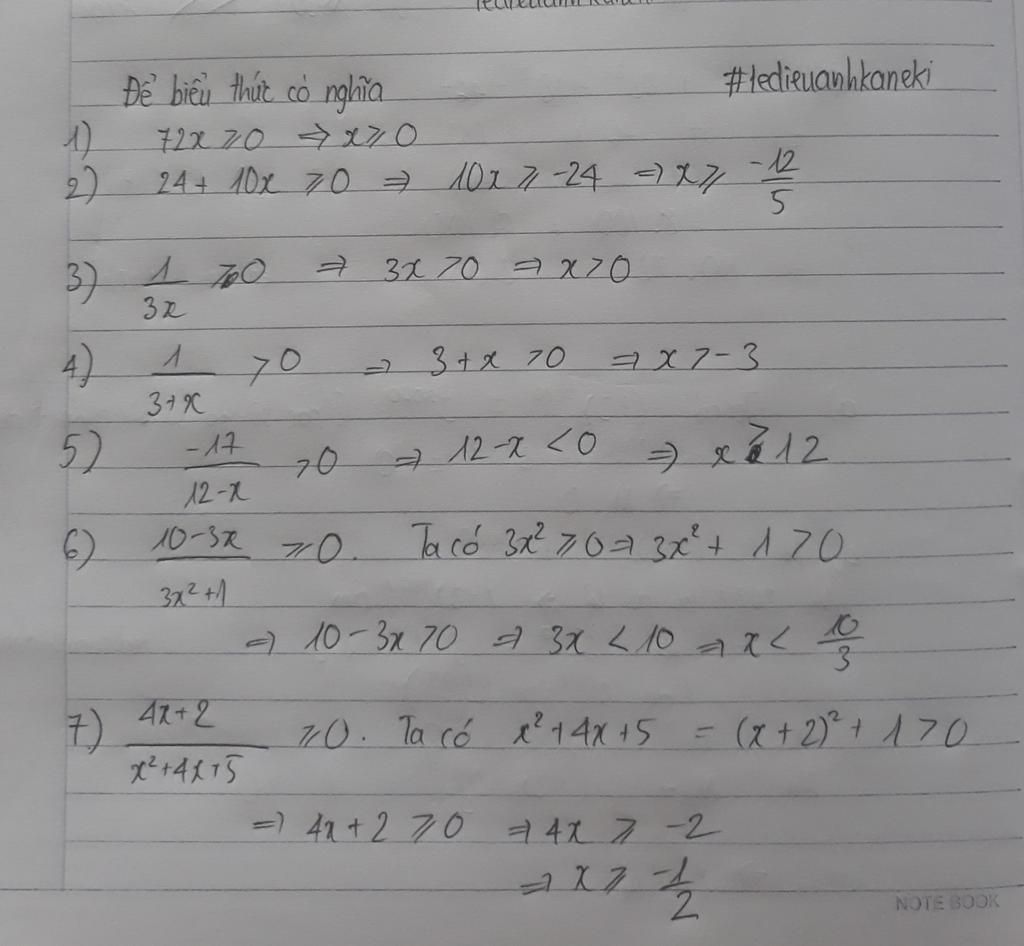 Để biểu thức có nghĩa #ledieuanhkaneki
1) 72x ⩾ 0 ⇒ x ⩾ 0
2) 24 + 10x ⩾ 0 ⇒ 10x ⩾ -24 ⇒ x ⩾ -12/5
3) 1/3x ⩾ 0 ⇒ 3x > 0 ⇒ x > 0
4) 1/3+x > 0 ⇒ 3 + x > 0 ⇒ x > -3
5) -17/12-x > 0 ⇒ 12 - x < 0 ⇒ x > 12
6) 10-3x/3x²+1 ⩾ 0. Ta có 3x² ⩾ 0 ⇒ 3x² + 1 > 0
⇒ 10 - 3x > 0 ⇒ 3x < 10 ⇒ x < 10/3
7) 4x+2/x²+4x+5 ⩾ 0. Ta có x² + 4x + 5 = (x + 2)² + 1 > 0
⇒ 4x + 2 ⩾ 0 ⇒ 4x ⩾ -2
⇒ x ⩾ -1/2
NOTE BOOK